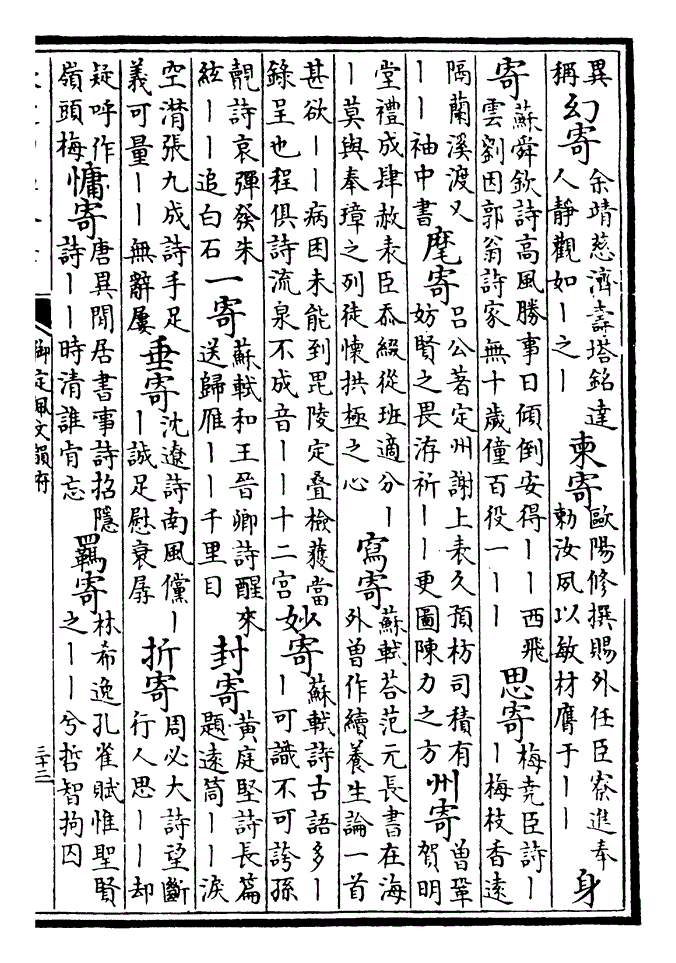 異稱幻寄余靖慈濟壽塔銘達人靜觀如｜之｜柬寄歐陽修撰賜外任臣寮進奉勑汝夙以敏材膺于｜｜身
寄蘇舜欽詩高風勝事日傾倒安得｜｜西飛雲劉因郭翁詩家無十歲僮百役一｜｜思寄梅堯臣詩｜｜梅枝香遠
隔蘭溪渡又｜｜袖中書麾寄吕公著定州謝上表久預枋司積有妨賢之畏洊祈｜｜更圖陳力之方州寄曾鞏賀明
堂禮成肆赦表臣忝綴從班適分｜｜莫與奉璋之列徒懷拱極之心寫寄蘇軾荅范元長書在海外曾作續養生論一首
甚欲｜｜病困未能到毘陵定疊檢獲當錄呈也程俱詩流泉不成音｜｜十二宮妙寄蘇軾詩古語多｜｜可識不可誇孫
覿詩哀彈發朱絃｜｜追白石一寄蘇軾和王晉卿詩醒來送歸雁｜｜千里目封寄黄庭堅詩長篇題遠筒｜｜淚
空潸張九成詩手足義可量｜｜無辭屢垂寄沈遼詩南風儻｜｜誠足慰衰孱折寄周必大詩望斷行人思｜｜却
疑呼作嶺頭梅慵寄唐異閒居書事詩招隱詩｜｜時清誰肯忘羈寄林希逸孔雀賦惟聖賢之｜｜兮哲智拘囚
御定佩文韻府
三十二